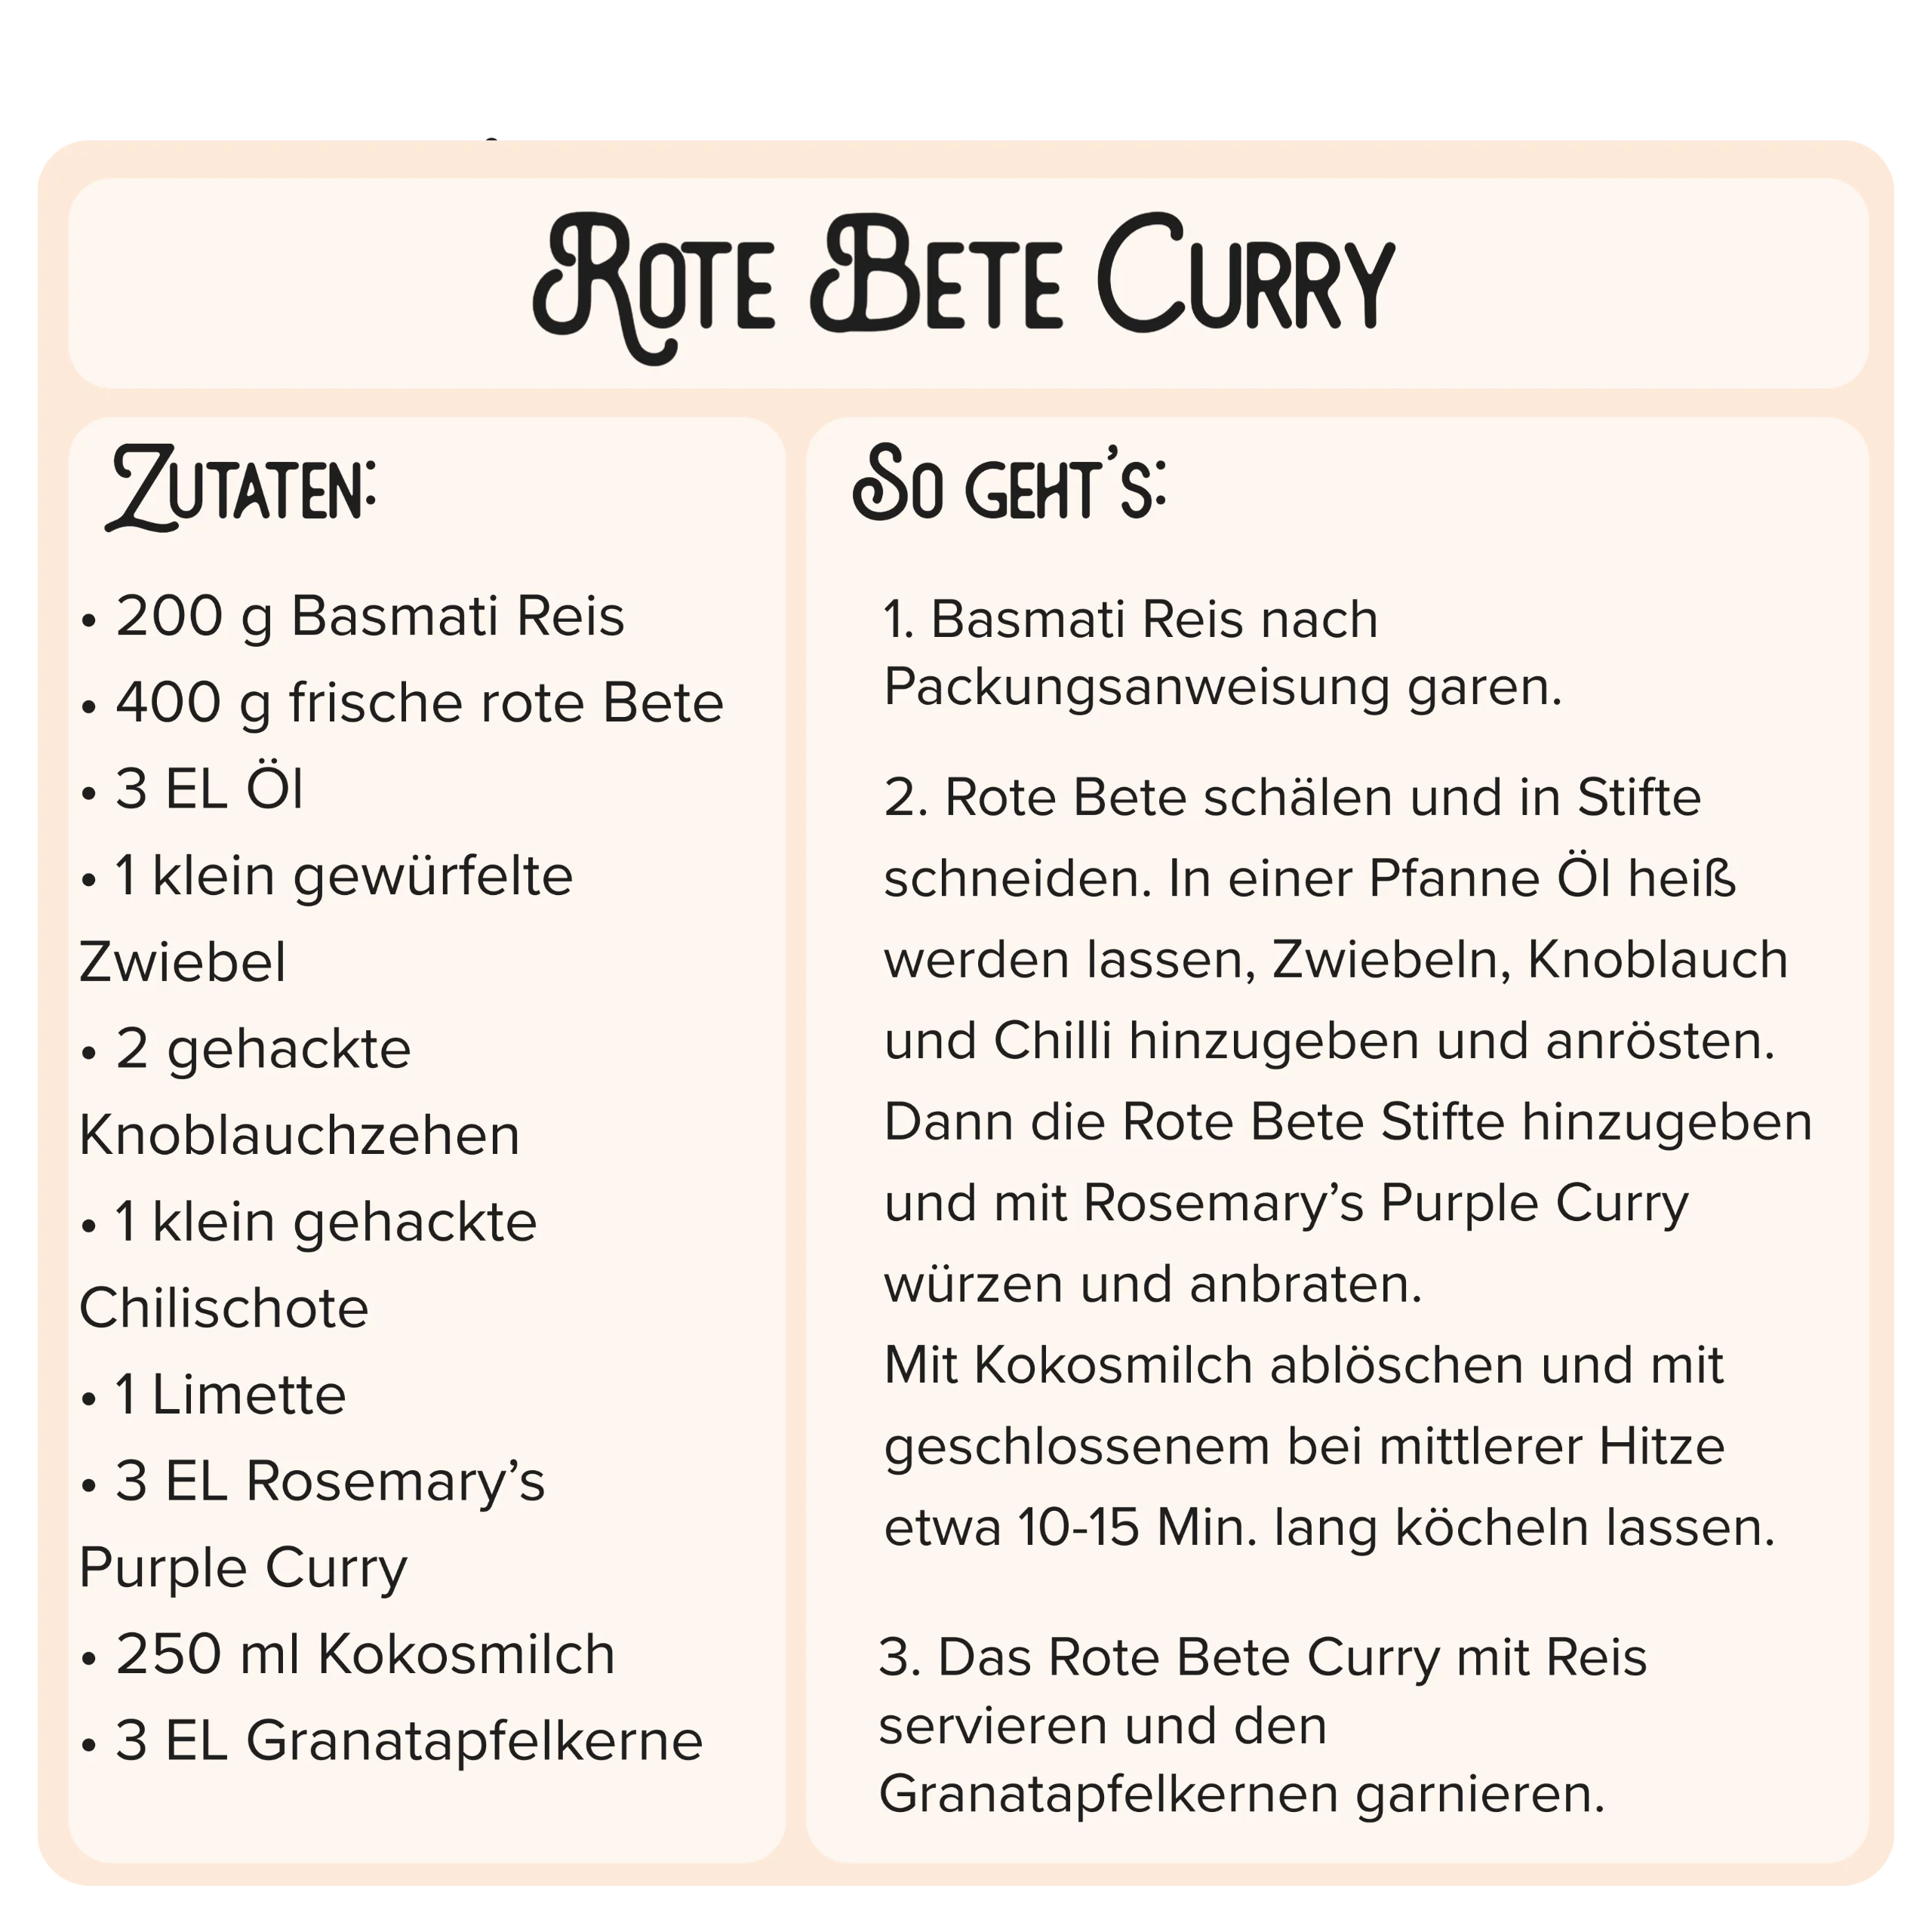 Rote Bete Curry
Zutaten:
• 200 g Basmati Reis
• 400 g frische rote Bete
• 3 EL Öl
• 1 klein gewürfelte
Zwiebel
• 2 gehackte
Knoblauchzehen
• 1 klein gehackte
Chilischote
• 1 Limette
• 3 EL Rosemary’s
Purple Curry
• 250 ml Kokosmilch
• 3 EL Granatapfelkerne
So geht’s:
1. Basmati Reis nach
Packungsanweisung garen.
2. Rote Bete schälen und in Stifte
schneiden. In einer Pfanne Öl heiß
werden lassen, Zwiebeln, Knoblauch
und Chilli hinzugeben und anrösten.
Dann die Rote Bete Stifte hinzugeben
und mit Rosemary’s Purple Curry
würzen und anbraten.
Mit Kokosmilch ablöschen und mit
geschlossenem bei mittlerer Hitze
etwa 10-15 Min. lang köcheln lassen.
3. Das Rote Bete Curry mit Reis
servieren und den
Granatapfelkernen garnieren.